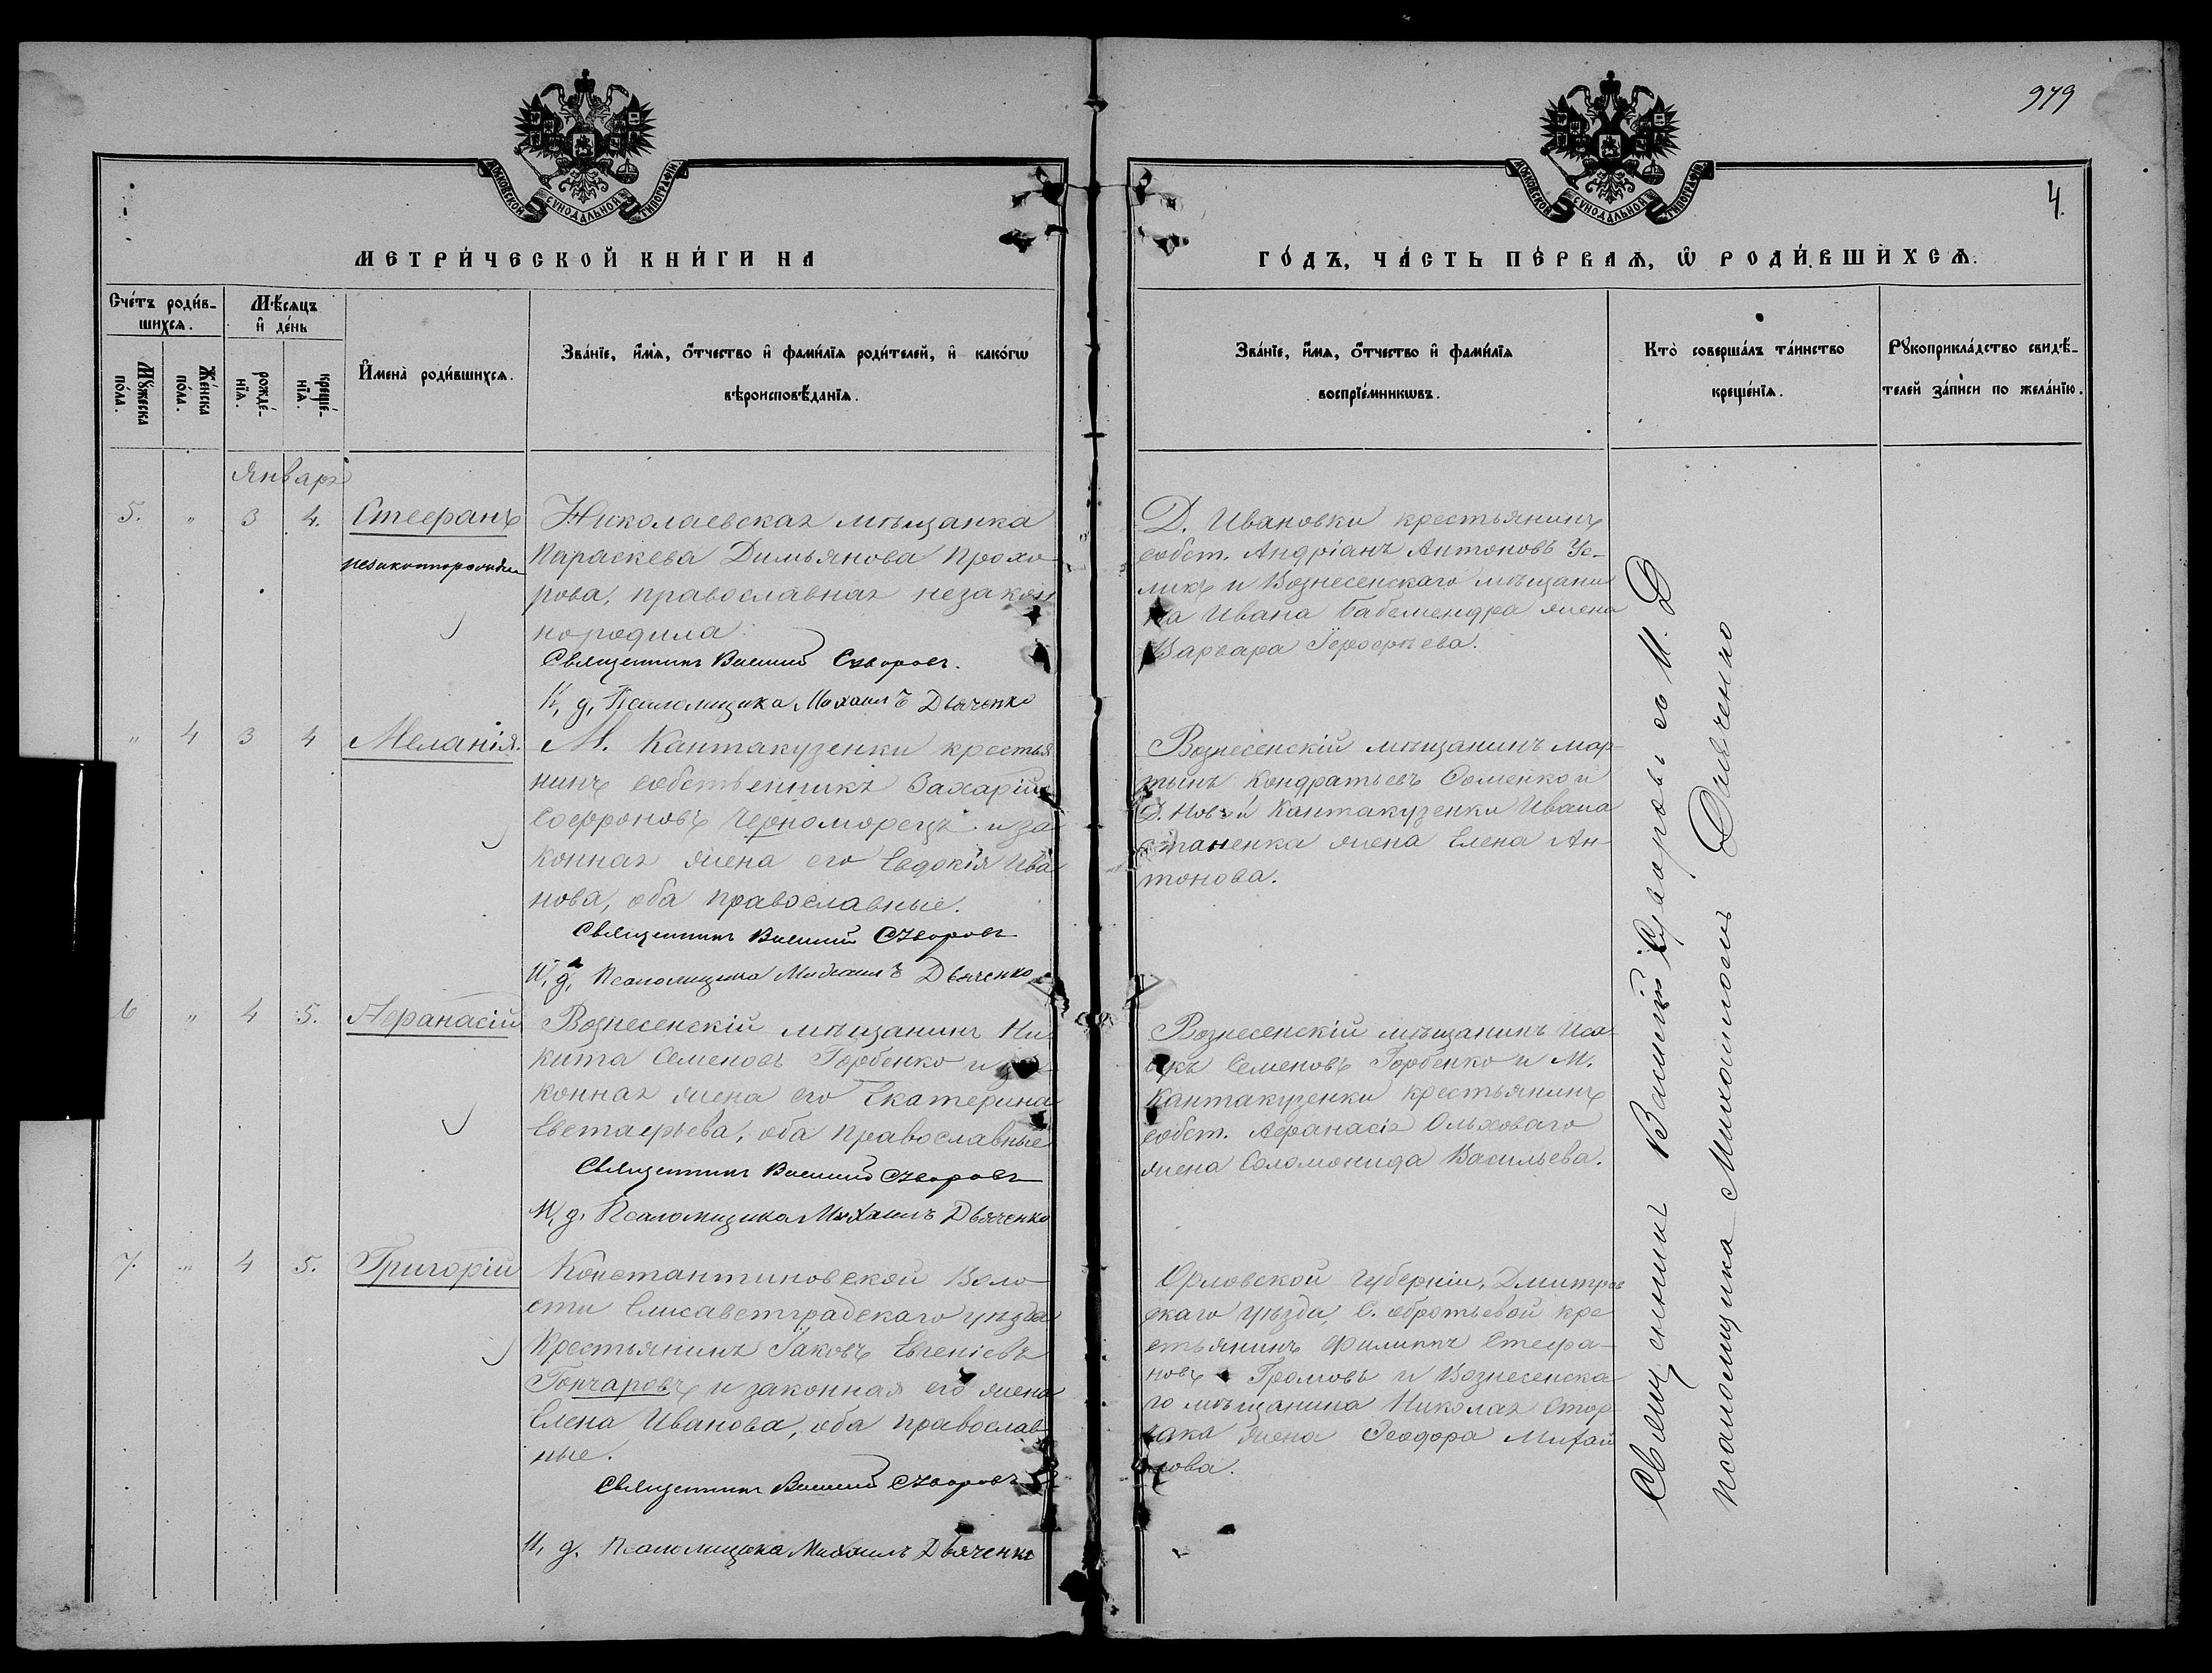 979
4.
МОСКОВСКОЙ СѴНОДАЛЬНОЙ ТИПОГРАФІИ
МОСКОВСКОЙ СѴНОДАЛЬНОЙ ТИПОГРАФІИ
МЕТРИ́ЧЕСКОЙ КНИ́ГИ НА
ГО́ДЪ, ЧА́СТЬ ПЕ́РВАѦ, Ѡ РОДИ́ВШИХСѦ.
Сче́тъ роди́в-
шихсѧ.
Мꙋ́жеска
по́ла.
Же́нска
по́ла.
Мѣ́сѧцъ
и҆ де́нь
рожде́-
нїѧ.
креще́-
нїѧ.
И҆мена̀ роди́вшихсѧ.
Зва́нїе, и҆́мѧ, ѻ҆́тчество и҆ фами́лїѧ роди́телей, и҆ како́гѡ
вѣроисповѣ́данїѧ.
Зва́нїе, и҆́мѧ, ѻ҆́тчество и҆ фами́лїѧ
воспрїе́мникѡвъ.
Кто̀ соверша́лъ та́инство
креще́нїѧ.
Рꙋкоприкла́дство свидѣ́-
телей за́писи по жела́нїю.
Январь
5. " 3 4. Стефанъ
незаконнорожден
Николаевская мѣщанка
Параскева Димьянова Прохо-
рова, православная незакон
нородила.
Священникъ Василій Суворовъ.
И. д. Псаломщика Михаилъ Дьяченко
Д. Ивановки крестьянинъ
собст. Андріанъ Антоновъ Ус-
ликъ и Вознесенскаго мѣщани
на Ивана жена
Варвара Іерофѣева.
" 4 3 4 Меланія.
М. Кантакузенки крестья
нинъ собственникъ Захарій
Софроновъ Черноморецъ и за
конная жена его Евдокія Ива
нова, оба православные.
Священникъ Василій Суворовъ
И. д. Псаломщика Михаилъ Дьяченко
Вознесенскій мѣщанинъ Мар-
тынъ Кондратьевъ Соменко и
Д. Новой Кантакузенки Ивана
жена Елена Ан-
тонова.
6 " 4 5. Афанасій
Вознесенскій мѣщанинъ Ни
кита Семеновъ Горбенко и за
конная жена его Екатерина
Евстафьева, оба православные
Священникъ Василій Суворовъ
И. д. Псаломщика Михаилъ Дьяченко
Вознесенскій мѣщанинъ Иса
акъ Семеновъ Горбенко и М.
Кантакузенки крестьянинъ
собст. Афанасія Ольховаго
жена Соломонида Васильева.
7. " 4 5. Григорій
Константиновской Воло
сти Елисаветградскаго уѣзда
Крестьянинъ Іаковъ Евгеніевъ
Гончаровъ и законная его жена
Елена Иванова, оба православ
ные.
Священникъ Василій Суворовъ
И. д. Псаломщика Михаилъ Дьяченко
Орловской губерніи, Дмитров
скаго уѣзда, С. Обротьевой кре
стьянинъ Филиппъ Стефа-
новъ Громовъ и Вознесенска
го мѣщанина Николая Стор
чака жена Феодора Михай
лова.
Священникъ Василій Суворовъ съ И. Д
псаломщика Михаиломъ Дьяченко